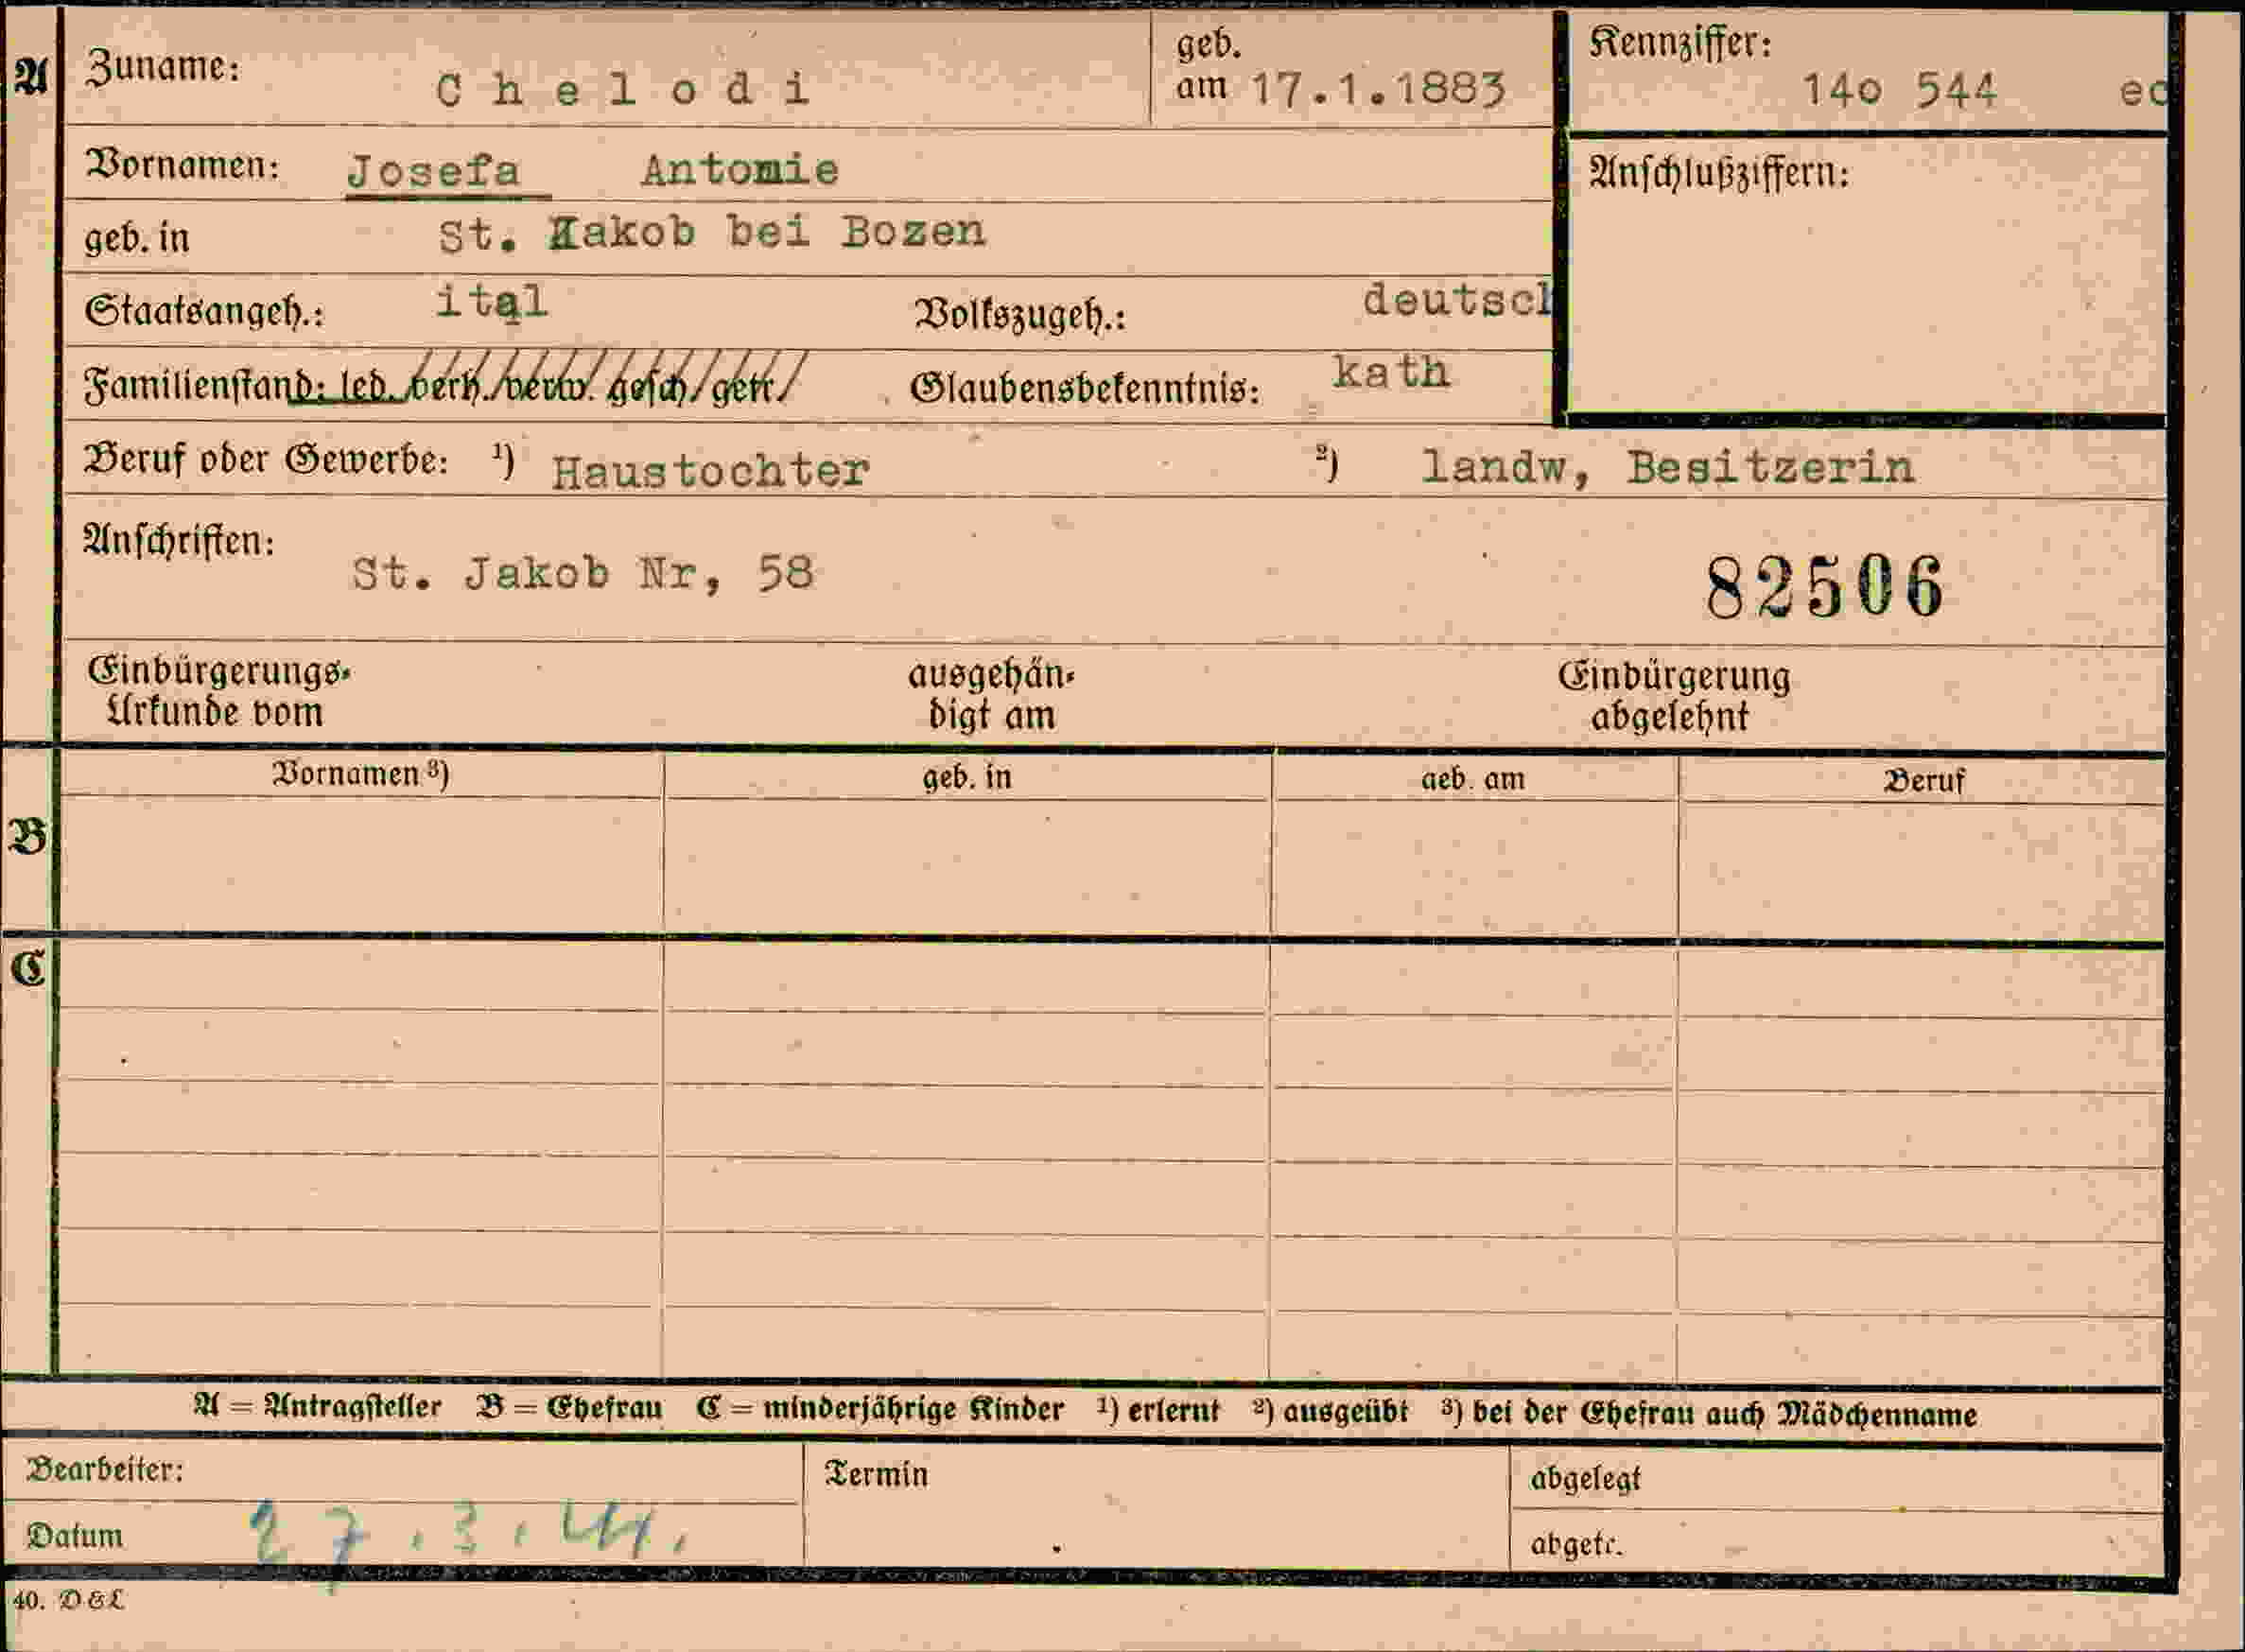 A Zuname: Chelodi geb. am 17.1.1883 Kennziffer: 14o 544 ed
Vornamen: Josefa Antomie Anschlußziffern:
geb. in St. Jakob bei Bozen
Staatsangeh.: ital Volkszugeh.: deutsch
Familienstand: led. verh. verw. gesch. getr. Glaubensbekenntnis: kath
Beruf oder Gewerbe: ¹) Haustochter ²) landw, Besitzerin
Anschriften:
St. Jakob Nr, 58 82506
Einbürgerungs- ausgehän- Einbürgerung
Urkunde vom digt am abgelehnt
Vornamen ³) geb. in geb. am Beruf
B
C
A = Antragsteller B = Ehefrau C = minderjährige Kinder ¹) erlernt ²) ausgeübt ³) bei der Ehefrau auch Mädchenname
Bearbeiter: Termin abgelegt
Datum 27.3.44. abgetr.
40. D&L